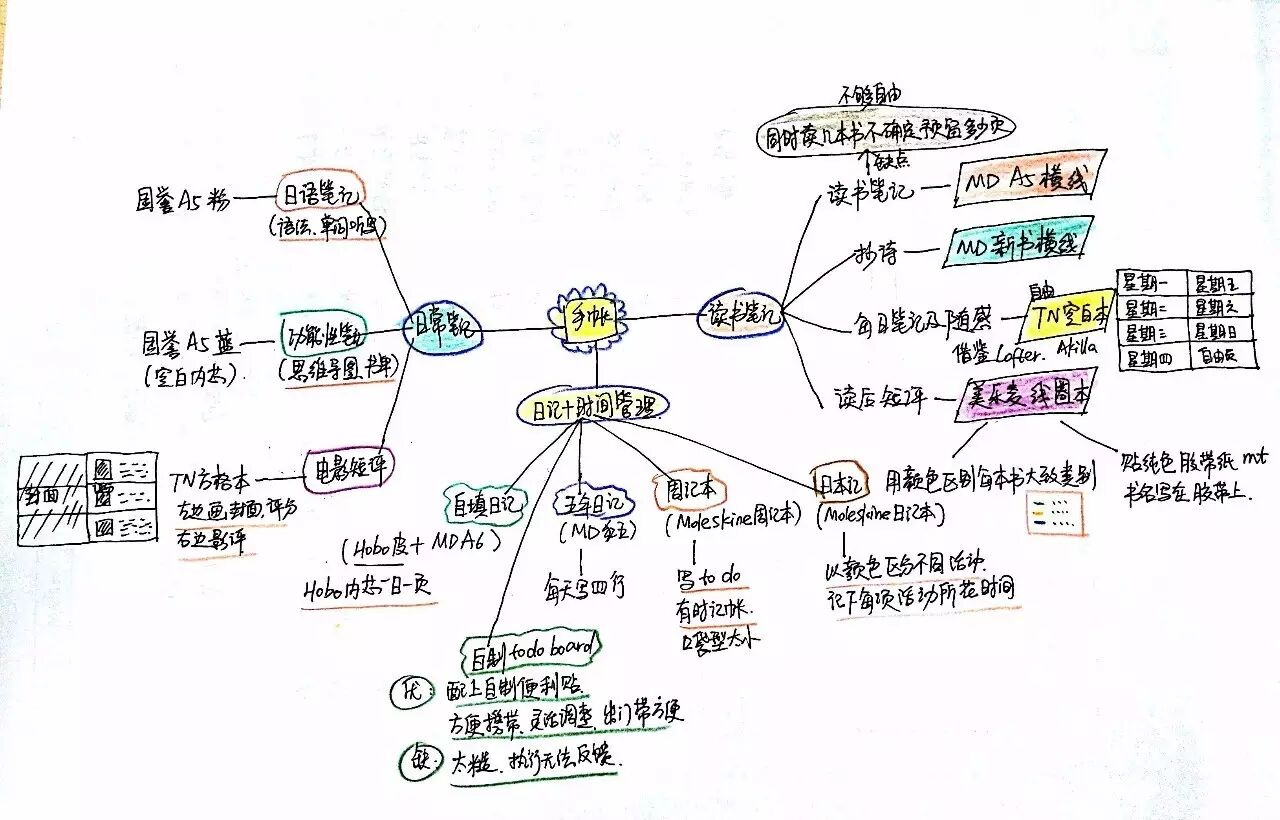 手帐
日常笔记
日语笔记
(语法、单词听写)
国誉A5粉
功能性笔记
(思维导图、书单)
国誉A5蓝
(空白内芯).
电影短评
TN方格本
左边画封面,评分
右边影评
封面
日记+时间管理
自填日记
(Hobo皮+MDA6)
Hobo内芯一日一页
五年日记
(MD五年)
每天写四行
周记本
(Moleskine周记本)
写to do
有时记帐.
口袋型大小
日本记
(Moleskine日记本)
以颜色区分不同活动.
记下每项活动所花时间
自制todo board
优:
配上自制便利贴.
方便携带、灵活调整,出门带方便
缺.
太糙、执行无法反馈.
读书笔记
不够自由
同时读几本书不确定预留多少页
缺点
读书笔记
MD A5横线
抄诗
MD新书横线
每日笔记及随感
借鉴Lofter. Akilla
自由
TN空白本
星期一 星期五
星期二 星期六
星期三 星期日
星期四 自由页
读后短评
美乐麦线圈本
用颜色区别每本书大致类别
贴纯色胶带纸mt
书名写在胶带上.